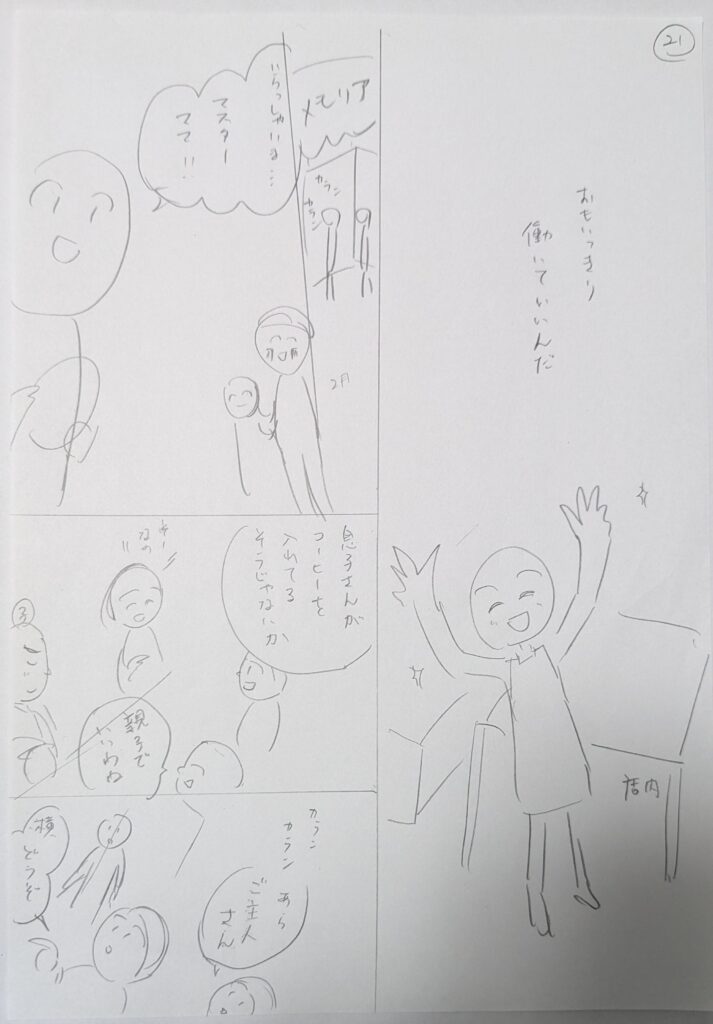 21
おもいっきり
働いていいんだ
店内
メモリア
カラン
カラン
2月
いらっしゃいま…
マスター
ママ!!
息子さんが
コーヒーを
入れてる
そうじゃないか
そー
なの
親子で
いいわね
カラン
カラン
あら
ご主人
さん
横
どうぞ